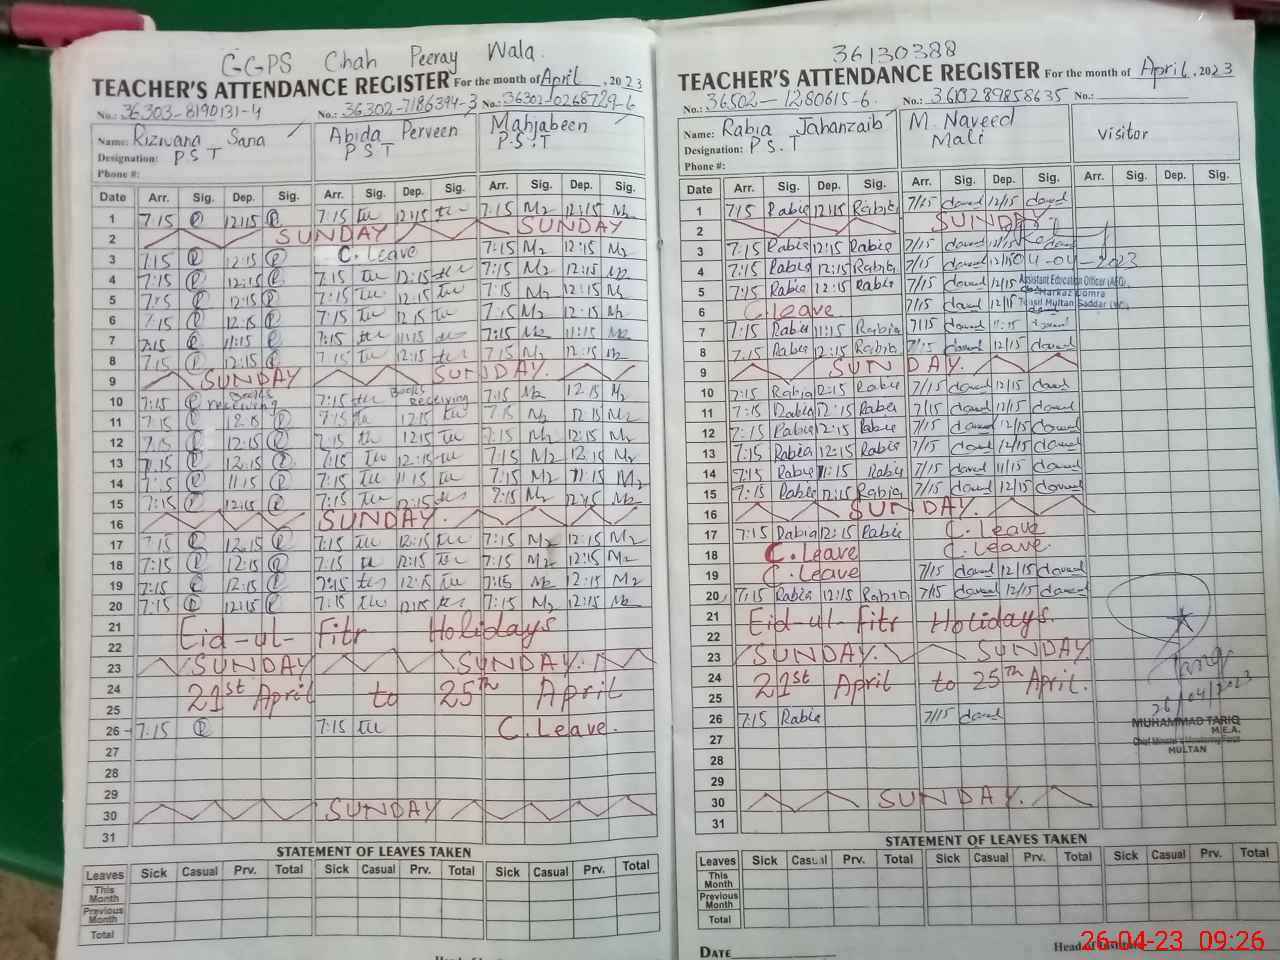 GGPS Chah Peeray Wala.
TEACHER'S ATTENDANCE REGISTER For the month of April, 2023
No.: 36303-8190131-4 No.: 36302-7186394-3 No.: 36302-0268729-6
Name: Rizwana Sana Abida Perveen Mahjabeen
Designation: P S T P S T P.S.T
Phone #:
Date Arr. Sig. Dep. Sig. Arr. Sig. Dep. Sig. Arr. Sig. Dep. Sig.
1 7:15 12:15 7:15 12:15 7:15 M2 12:15 M2
2 SUNDAY SUNDAY
3 7:15 12:15 C. Leave 7:15 M2 12:15 M2
4 7:15 12:15 7:15 12:15 7:15 M2 12:15 M2
5 7:15 12:15 7:15 12:15 7:15 M2 12:15 M2
6 7:15 12:15 7:15 12:15 7:15 M2 12:15 M2
7 7:15 11:15 7:15 11:15 7:15 M2 11:15 M2
8 7:15 12:15 7:15 12:15 7:15 M2 12:15 M2
9 SUNDAY SUNDAY.
10 7:15 Books receiving 7:15 Books receiving 7:15 M2 12:15 M2
11 7:15 12:15 7:15 12:15 7:15 M2 12:15 M2
12 7:15 12:15 7:15 12:15 7:15 M2 12:15 M2
13 7:15 12:15 7:15 12:15 7:15 M2 12:15 M2
14 7:15 11:15 7:15 11:15 7:15 M2 11:15 M2
15 7:15 12:15 7:15 12:15 7:15 M2 12:15 M2
16 SUNDAY.
17 7:15 12:15 7:15 12:15 7:15 M2 12:15 M2
18 7:15 12:15 7:15 12:15 7:15 M2 12:15 M2
19 7:15 12:15 7:15 12:15 7:15 M2 12:15 M2
20 7:15 12:15 7:15 12:15 7:15 M2 12:15 M2
21
22 Eid-ul-Fitr Holidays
23 SUNDAY SUNDAY.
24 21st April to 25th April
25
26 7:15 7:15 C. Leave.
27
28
29
30 SUNDAY
31
STATEMENT OF LEAVES TAKEN
Leaves Sick Casual Prv. Total Sick Casual Prv. Total Sick Casual Prv. Total
This Month
Previous Month
Total
36130388
TEACHER'S ATTENDANCE REGISTER For the month of April, 2023
No.: 36502-1280615-6. No.: 3610289858635 No.:
Name: Rabia Jahanzaib M. Naveed visitor
Designation: P S. T Mali
Phone #:
Date Arr. Sig. Dep. Sig. Arr. Sig. Dep. Sig. Arr. Sig. Dep. Sig.
1 7:15 Rabia 12:15 Rabia 7/15 12/15
2 SUNDAY
3 7:15 Rabia 12:15 Rabia 7/15 12/15
4 7:15 Rabia 12:15 Rabia 7/15 12/15 04-04-2023
5 7:15 Rabia 12:15 Rabia 7/15 12/15 Assistant Education Officer (AEO)
6 C. leave 7/15 12/15 Tehsil Multan Saddar
7 7:15 Rabia 11:15 Rabia 7/15 11:15
8 7:15 Rabia 12:15 Rabia 7/15 12/15
9 SUNDAY.
10 7:15 Rabia 12:15 Rabia 7/15 12/15
11 7:15 Rabia 12:15 Rabia 7/15 12/15
12 7:15 Rabia 12:15 Rabia 7/15 12/15
13 7:15 Rabia 12:15 Rabia 7/15 12/15
14 7:15 Rabia 11:15 Rabia 7/15 11/15
15 7:15 Rabia 12:15 Rabia 7/15 12/15
16 SUNDAY.
17 7:15 Rabia 12:15 Rabia C. Leave
18 C. Leave C. Leave.
19 C. Leave 7/15 12/15
20 7:15 Rabia 12:15 Rabia 7/15 12/15
21 Eid-ul-Fitr Holidays.
22
23 SUNDAY. SUNDAY
24 21st April to 25th April.
25
26 7:15 Rabia 7/15
26/04/2023
MUHAMMAD TARIQ
M.E.A.
MULTAN
27
28
29
30 SUNDAY.
31
STATEMENT OF LEAVES TAKEN
Leaves Sick Casual Prv. Total Sick Casual Prv. Total Sick Casual Prv. Total
This Month
Previous Month
Total
DATE
Head of
26-04-23 09:26